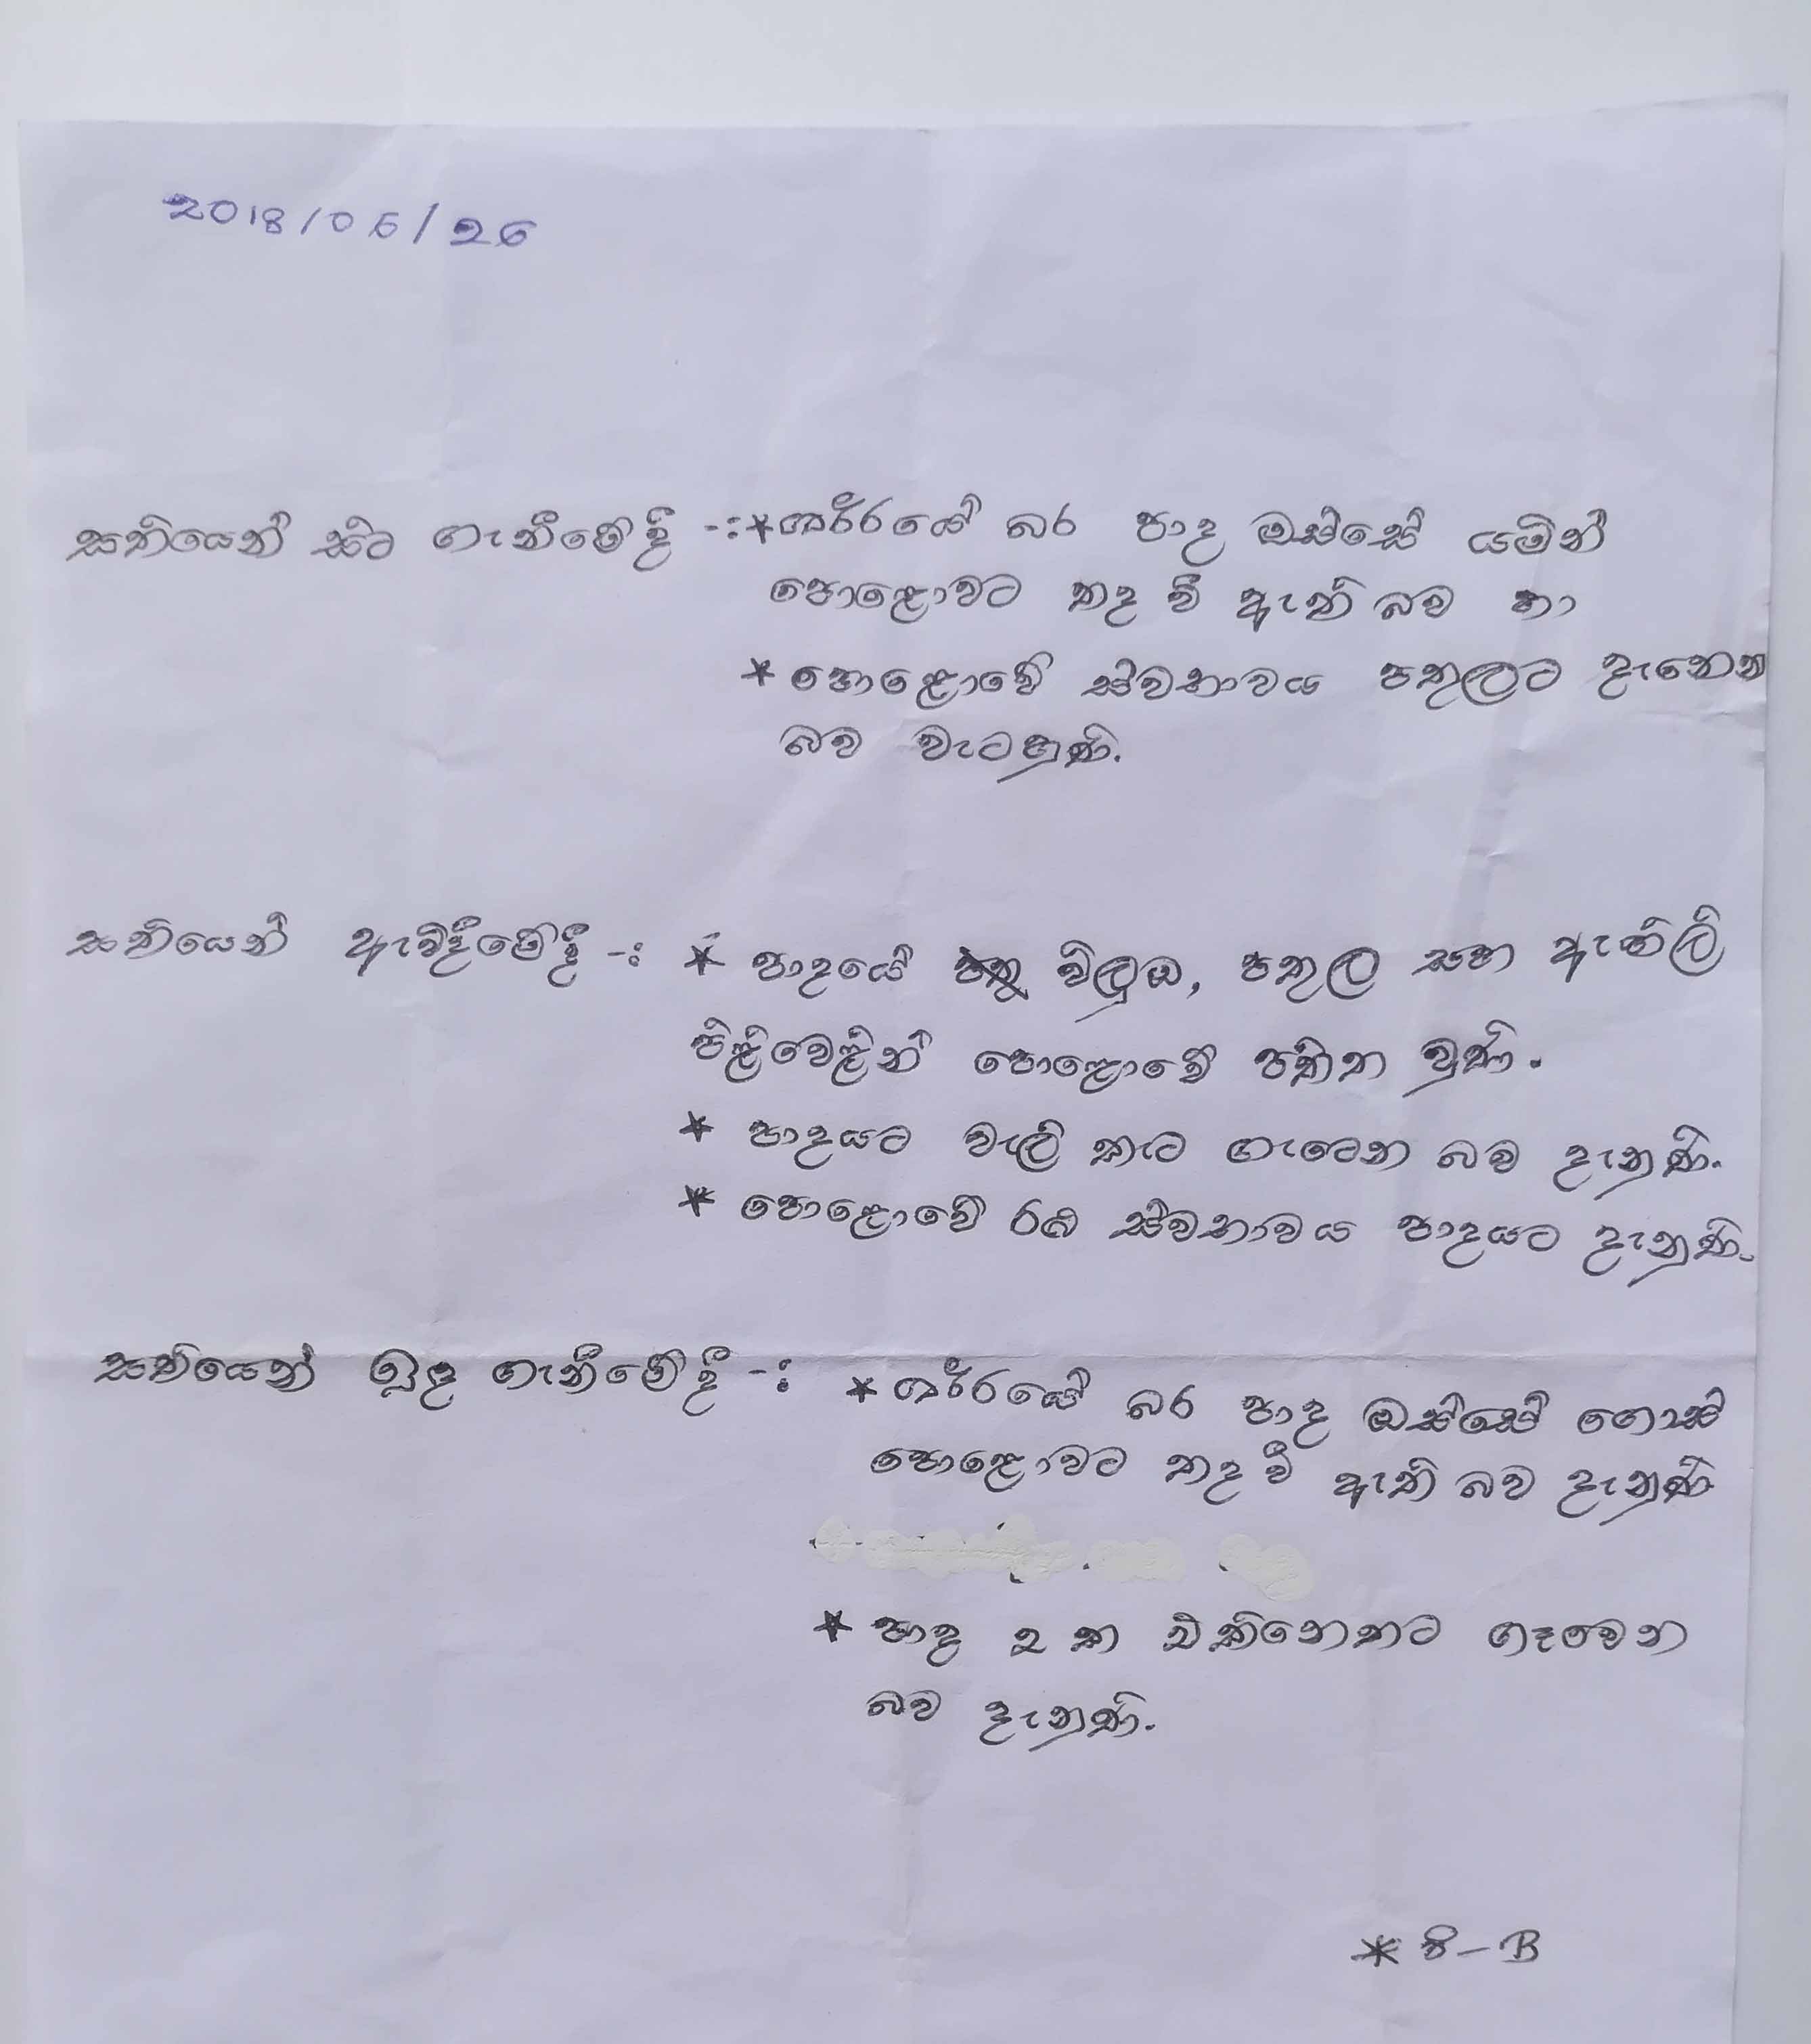 2018/06/26
සතියෙන් සිට ගැනීමේදී -: * ශරීරයේ බර පාද ඔස්සේ යමින්
පොළොවට තද වී ඇති බව හා
* පොළොවේ ස්වභාවය පතුලට දැනෙන
බව වැටහුණි.
සතියෙන් ඇවිදීමේදී -: * පාදයේ විලුඹ, පතුල සහ ඇඟිලි
පිළිවෙළින් පොළොවේ පතිත වුණි.
* පාදයට වැලි කැට ගැටෙන බව දැනුණි.
* පොළොවේ රළු ස්වභාවය පාදයට දැනුණි.
සතියෙන් ඉඳ ගැනීමේදී -: * ශරීරයේ බර පාද ඔස්සේ ගොස්
පොළොවට තද වී ඇති බව දැනුණි
* පාද 2 ක එකිනෙකට ගෑවෙන
බව දැනුණි.
* 8 - B